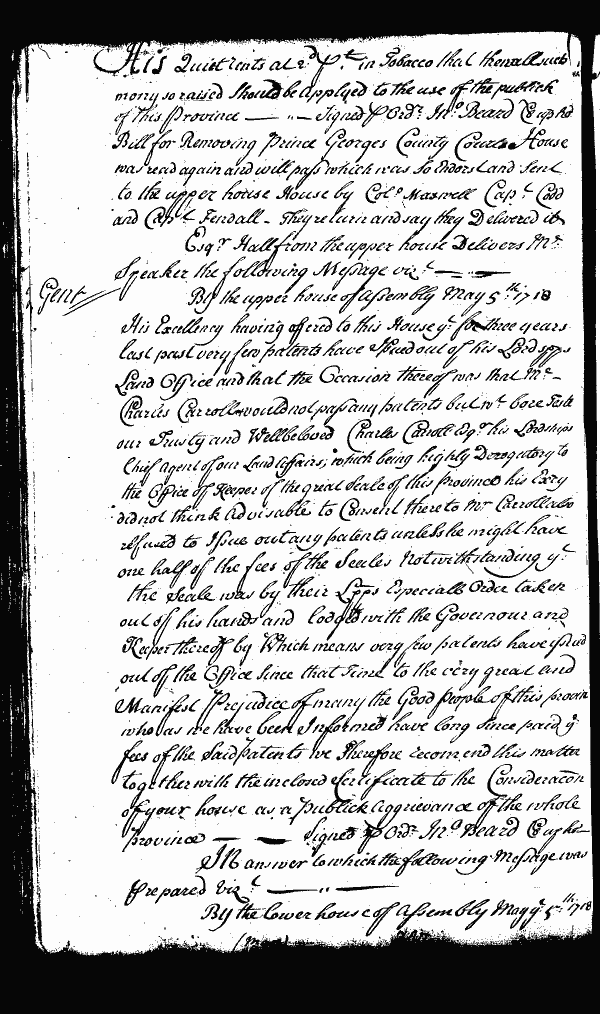 His Quiet rents at 2d p.r t. in Tobacco that then all such
mony so raised Should be applyed to the use of the publick
of this Province — " — Signed p Ordr. Jno. Beard
Bill for Removing Prince Georges County Court House
was read again and will pass which was so Endorst and sent
to the upper house House by Colo. Maxwell Capt. Codd
and Capt. Fendall – They return and say they Delivered it
Esqr. Hall from the upper house Delivers Mr.
Speaker the following Message vizt. — —
Gent
By the upper house of Assembly May 5th 1718
His Excellency having offered to this House yt. for three years
last past very few patents have Issued out of his Lordspps
Land Office and that the Occasion thereof was that Mr. –
Charles Carroll would not pass any patents but wt. bore Teste
our Trusty and Wellbeloved Charles Carroll Esqr. his Lordships
Chief Agent of our Land Affairs, which being highly Derogatory to
the Office of Keeper of the great Seale of this Province his Excy
did not think advisable to Consent thereto Mr Carroll also
refused to Issue out any patents unless he might have
one half of the fees of the Seales Notwithstanding yt.
the Seale was by their Lpps Especiall Order taken
out of his hands and lodged with the Governour and
Keeper thereof by Which means very few patents have issued
out of the Office since that Time to the very great and
Manifest Prejudice of many the Good people of this provin
who as we have been Informed have long since paid ye
fees of the Said patents we Therefore recomend this matter
together with the inclosed Certificate to the Consideracon
of your house as a publick Aggrievance of the whole
Province — — Signed p Ordr. Jno. Beard
In answer to which the following Message was
Prepared vizt. — " —
By the lower house of Assembly May ye 5th 1718